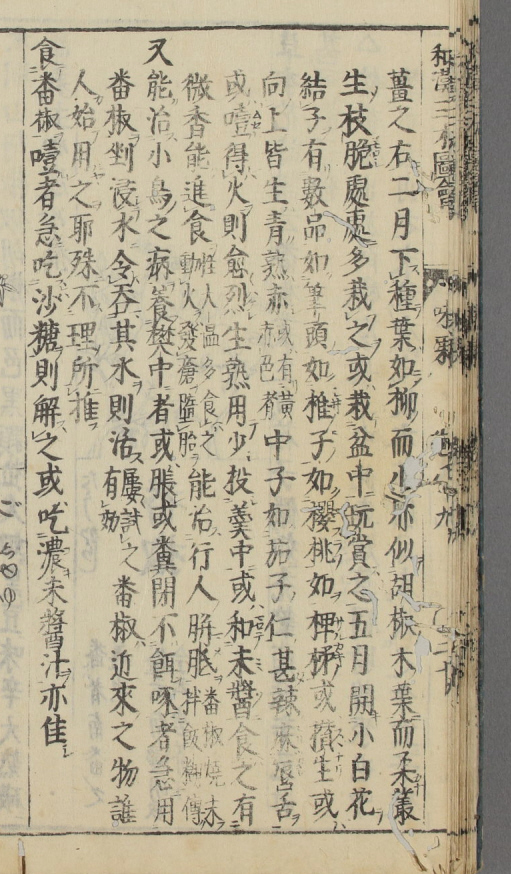 薑之右二月下種葉如柳而小亦似胡椒木葉而柔叢
生枝脆處處多栽之或栽盆中玩賞之五月開小白花
結子有數品如筆頭如椎子如櫻桃如椑柹或攅生或
向上皆生青熟赤或有黃赤色者中子如茄子仁甚辣麻唇舌
或噎得火則愈烈生熟用少投羹中或和未醬食之有
微香能進食怪人温多食之動火發瘡墮胎能治行人胼胝番椒燒末拌飯糊傳
又能治小鳥之病養樊中者或脹或糞閉不餌啄者急用
番椒剉浸水令吞其水則活屢試有効之番椒近來之物誰
人始用之耶殊不理所推
食番椒噎者急吃沙糖則解之或吃濃未醬汁亦佳